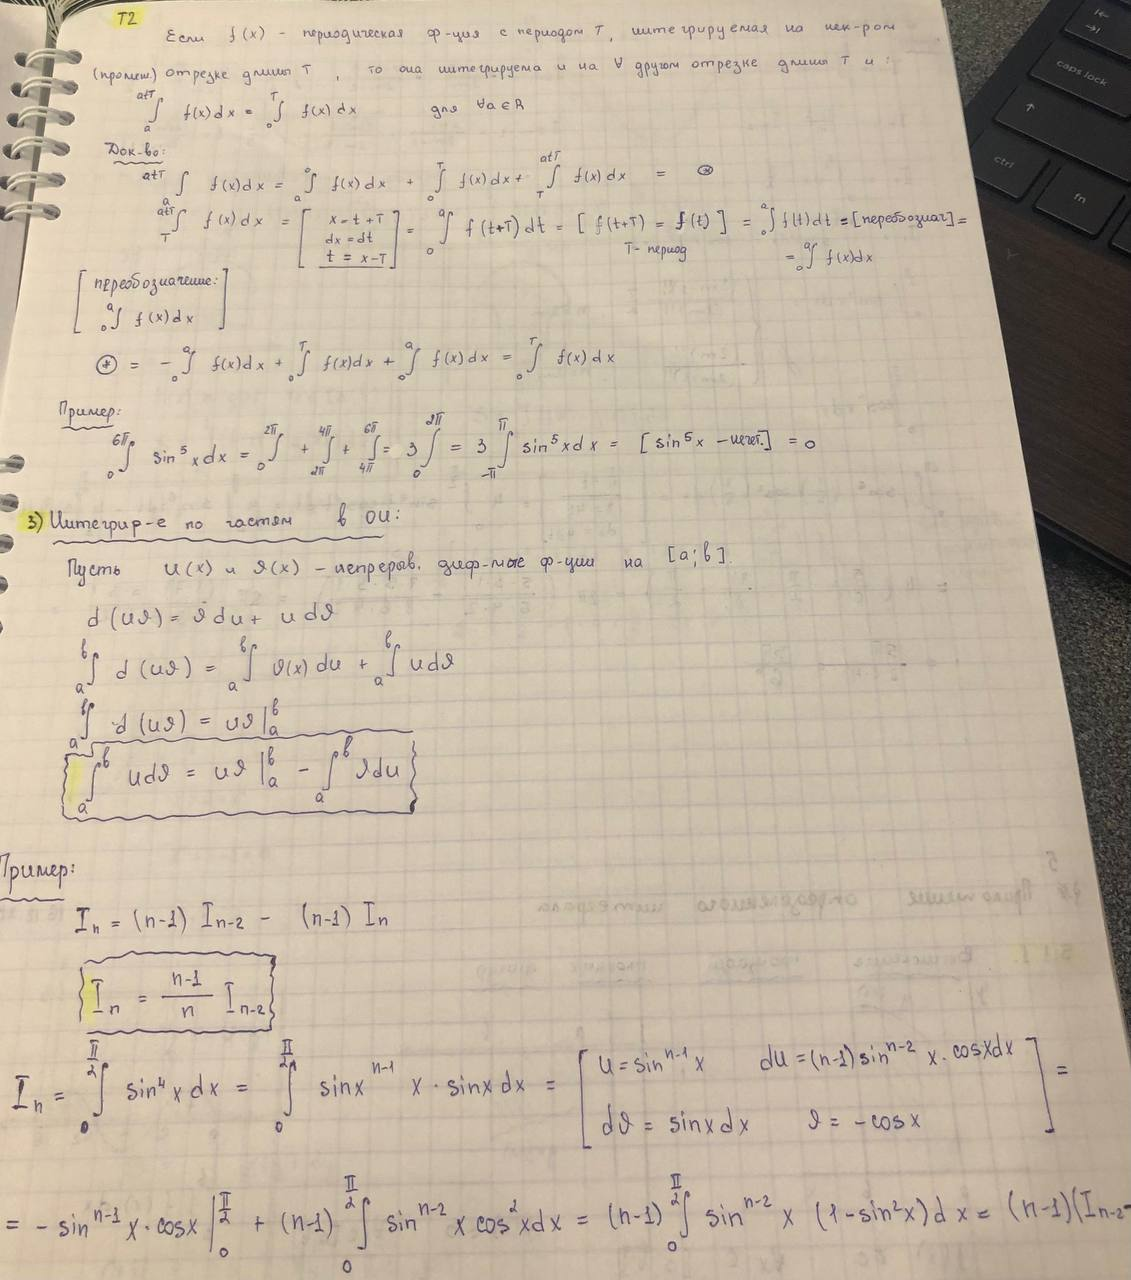 T2
Если f(x) - периодическая ф-ция с периодом T, интегрируемая на нек-ром
(промеж.) отрезке длины T, то она интегрируема и на ∀ другом отрезке длины T и:
∫_a^{a+T} f(x)dx = ∫_0^T f(x)dx для ∀a∈R
Док-во:
∫_a^{a+T} f(x)dx = ∫_a^0 f(x)dx + ∫_0^T f(x)dx + ∫_T^{a+T} f(x)dx = ⊛
∫_T^{a+T} f(x)dx = [x-t+T dx=dt t=x-T] = ∫_0^a f(t+T)dt = [f(t+T) = f(t)] = ∫_0^a f(t)dt = [переобознач] =
T-период = ∫_0^a f(x)dx
[переобозначение:
∫_0^a f(x)dx]
⊛ = -∫_0^a f(x)dx + ∫_0^T f(x)dx + ∫_0^a f(x)dx = ∫_0^T f(x)dx
Пример:
∫_0^{6π} sin⁵xdx = ∫_0^{2π} + ∫_{2π}^{4π} + ∫_{4π}^{6π} = 3∫_0^{2π} = 3∫_{-π}^{π} sin⁵xdx = [sin⁵x - нечет.] = 0
3) Интегрир-е по частям в ОИ:
Пусть u(x) и ϑ(x) - непрерыв. диф-мые ф-ции на [a;b].
d(uϑ) = ϑdu + udϑ
∫_a^b d(uϑ) = ∫_a^b ϑ(x)du + ∫_a^b udϑ
∫_a^b d(uϑ) = uϑ|_a^b
∫_a^b udϑ = uϑ|_a^b - ∫_a^b ϑdu
Пример:
I_n = (n-1) I_{n-2} - (n-1) I_n
I_n = \frac{n-1}{n} I_{n-2}
I_n = ∫_0^{π/2} sin⁴xdx = ∫_0^{π/2} sinx^{n-1} x·sinxdx = [u=sin^{n-1}x du=(n-1)sin^{n-2}x·cosxdx
dϑ=sinxdx ϑ=-cosx] =
= -sin^{n-1}x·cosx|_0^{π/2} + (n-1)∫_0^{π/2} sin^{n-2}x cos²xdx = (n-1)∫_0^{π/2} sin^{n-2}x (1-sin²x)dx = (n-1)(I_{n-2}-